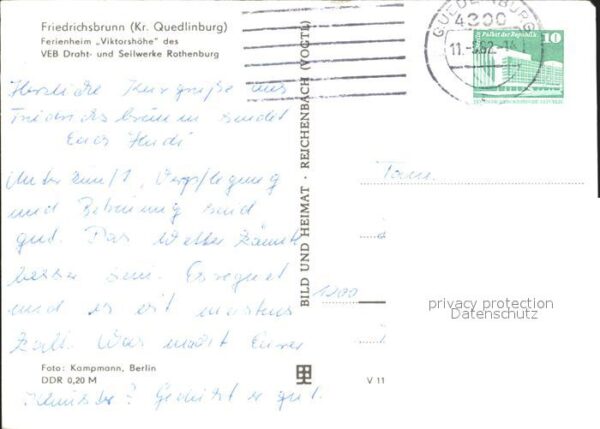 Friedrichsbrunn (Kr. Quedlinburg)
Ferienheim „Viktorshöhe" des
VEB Draht- und Seilwerke Rothenburg
Herzliche Kurgrüße aus
Friedrichsbrunn sendet
Eure Heidi
Unterkunft, Verpflegung
und Betreuung sind
gut. Das Wetter könnte
besser sein. Es regnet
und es ist meistens
kalt. Was macht Euer
? Geht es er gut.
Foto: Kampmann, Berlin
DDR 0,20 M
V 11
BILD UND HEIMAT · REICHENBACH (VOGTL)
QUEDLINBURG
4300
Palast der Republik
10
DEUTSCHE DEMOKRATISCHE REPUBLIK
Fam.
1200
privacy protection
Datenschutz